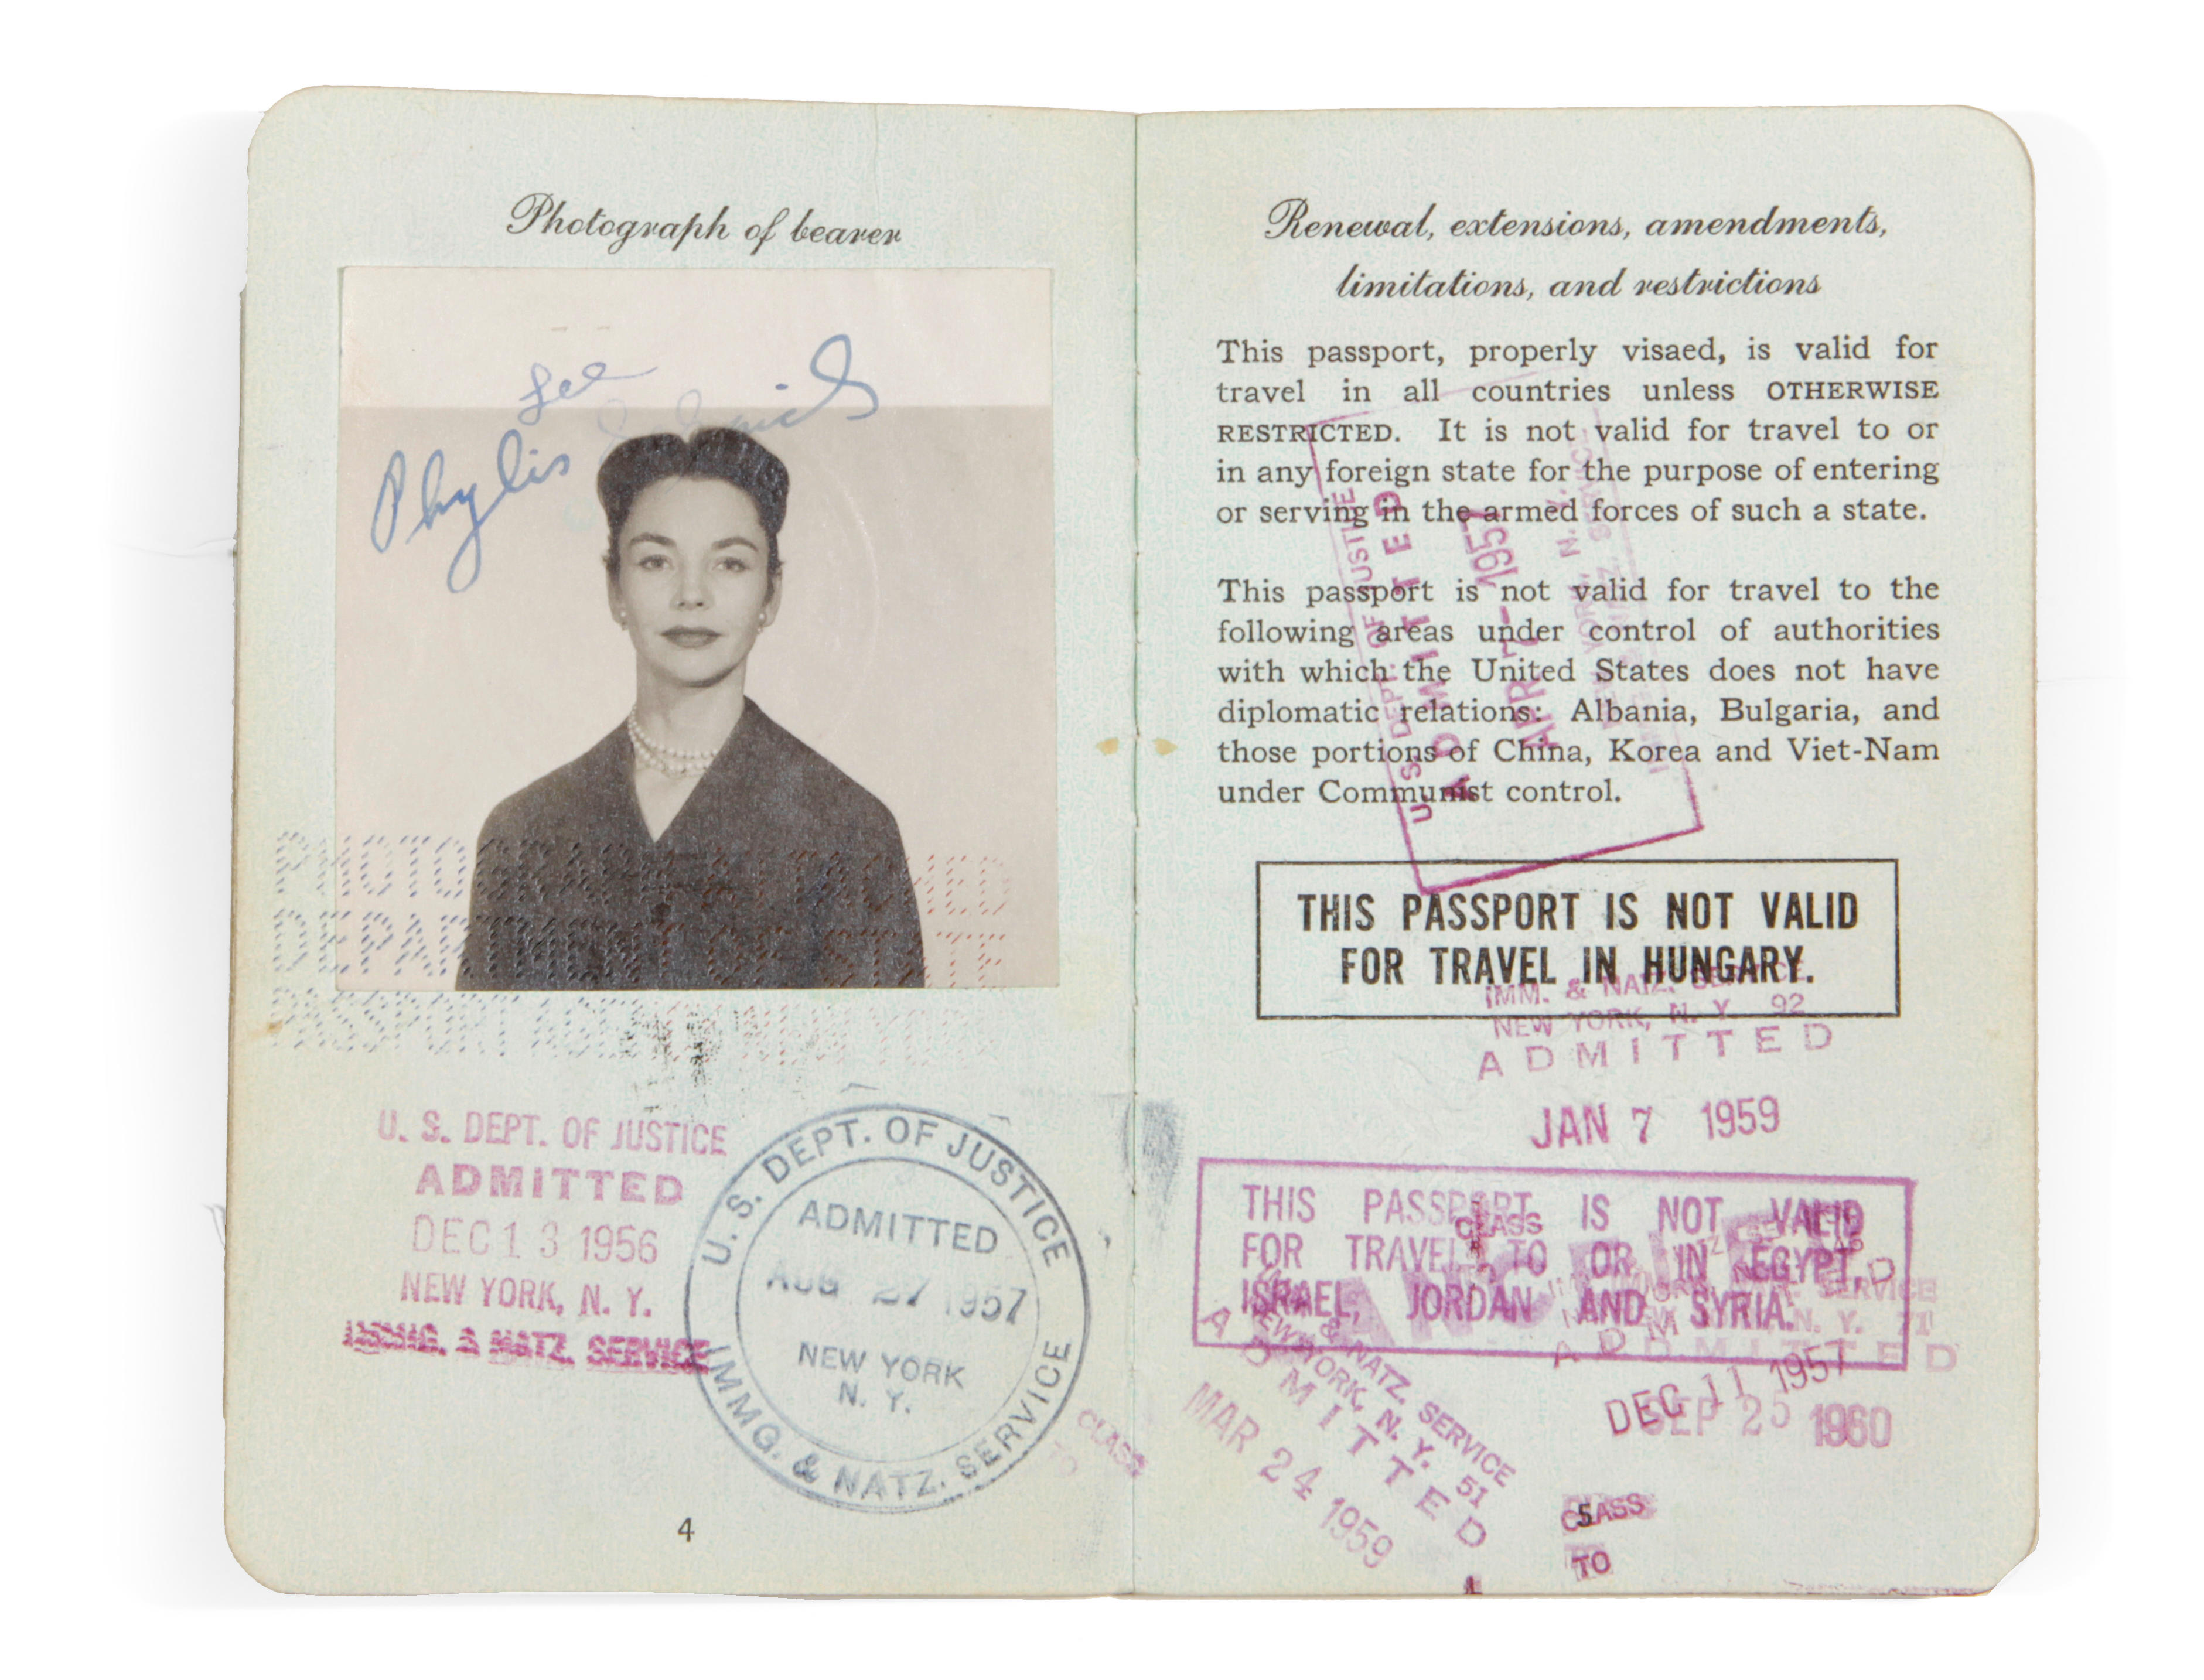 Photograph of bearer
Lee
Phylis
PHOTOGRAPH ATTACHED
DEPARTMENT OF STATE
PASSPORT AGENCY NEW YORK
U. S. DEPT. OF JUSTICE
ADMITTED
DEC 13 1956
NEW YORK, N. Y.
IMMG. & NATZ. SERVICE
U. S. DEPT. OF JUSTICE
ADMITTED
AUG 27 1957
NEW YORK
N. Y.
IMMG. & NATZ. SERVICE
CLASS
TO
4
Renewal, extensions, amendments,
limitations, and restrictions
This passport, properly visaed, is valid for
travel in all countries unless OTHERWISE
RESTRICTED. It is not valid for travel to or
in any foreign state for the purpose of entering
or serving in the armed forces of such a state.
This passport is not valid for travel to the
following areas under control of authorities
with which the United States does not have
diplomatic relations: Albania, Bulgaria, and
those portions of China, Korea and Viet-Nam
under Communist control.
U. S. DEPT. OF JUSTICE
ADMITTED
APR 7 - 1957
THIS PASSPORT IS NOT VALID
FOR TRAVEL IN HUNGARY.
IMM. & NATZ. SERVICE
NEW YORK, N. Y. 92
ADMITTED
JAN 7 1959
THIS PASSPORT IS NOT VALID
FOR TRAVEL TO OR IN EGYPT,
ISRAEL, JORDAN AND SYRIA.
CLASS
& NATZ. SERVICE
NEW YORK, N. Y. 51
ADMITTED
MAR 24 1959
SERVICE
N. Y. 71
ADMITTED
DEC 11 1957
SEP 25 1960
CLASS
TO
5